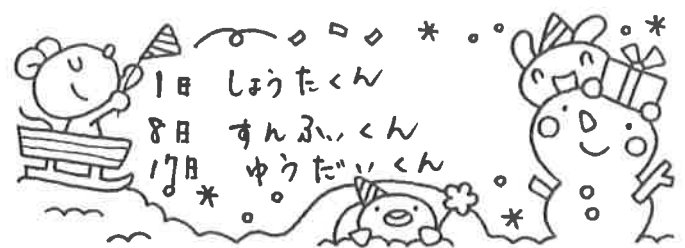 1日 しょうたくん
8日 すんぶいくん
17日 ゆうだいくん